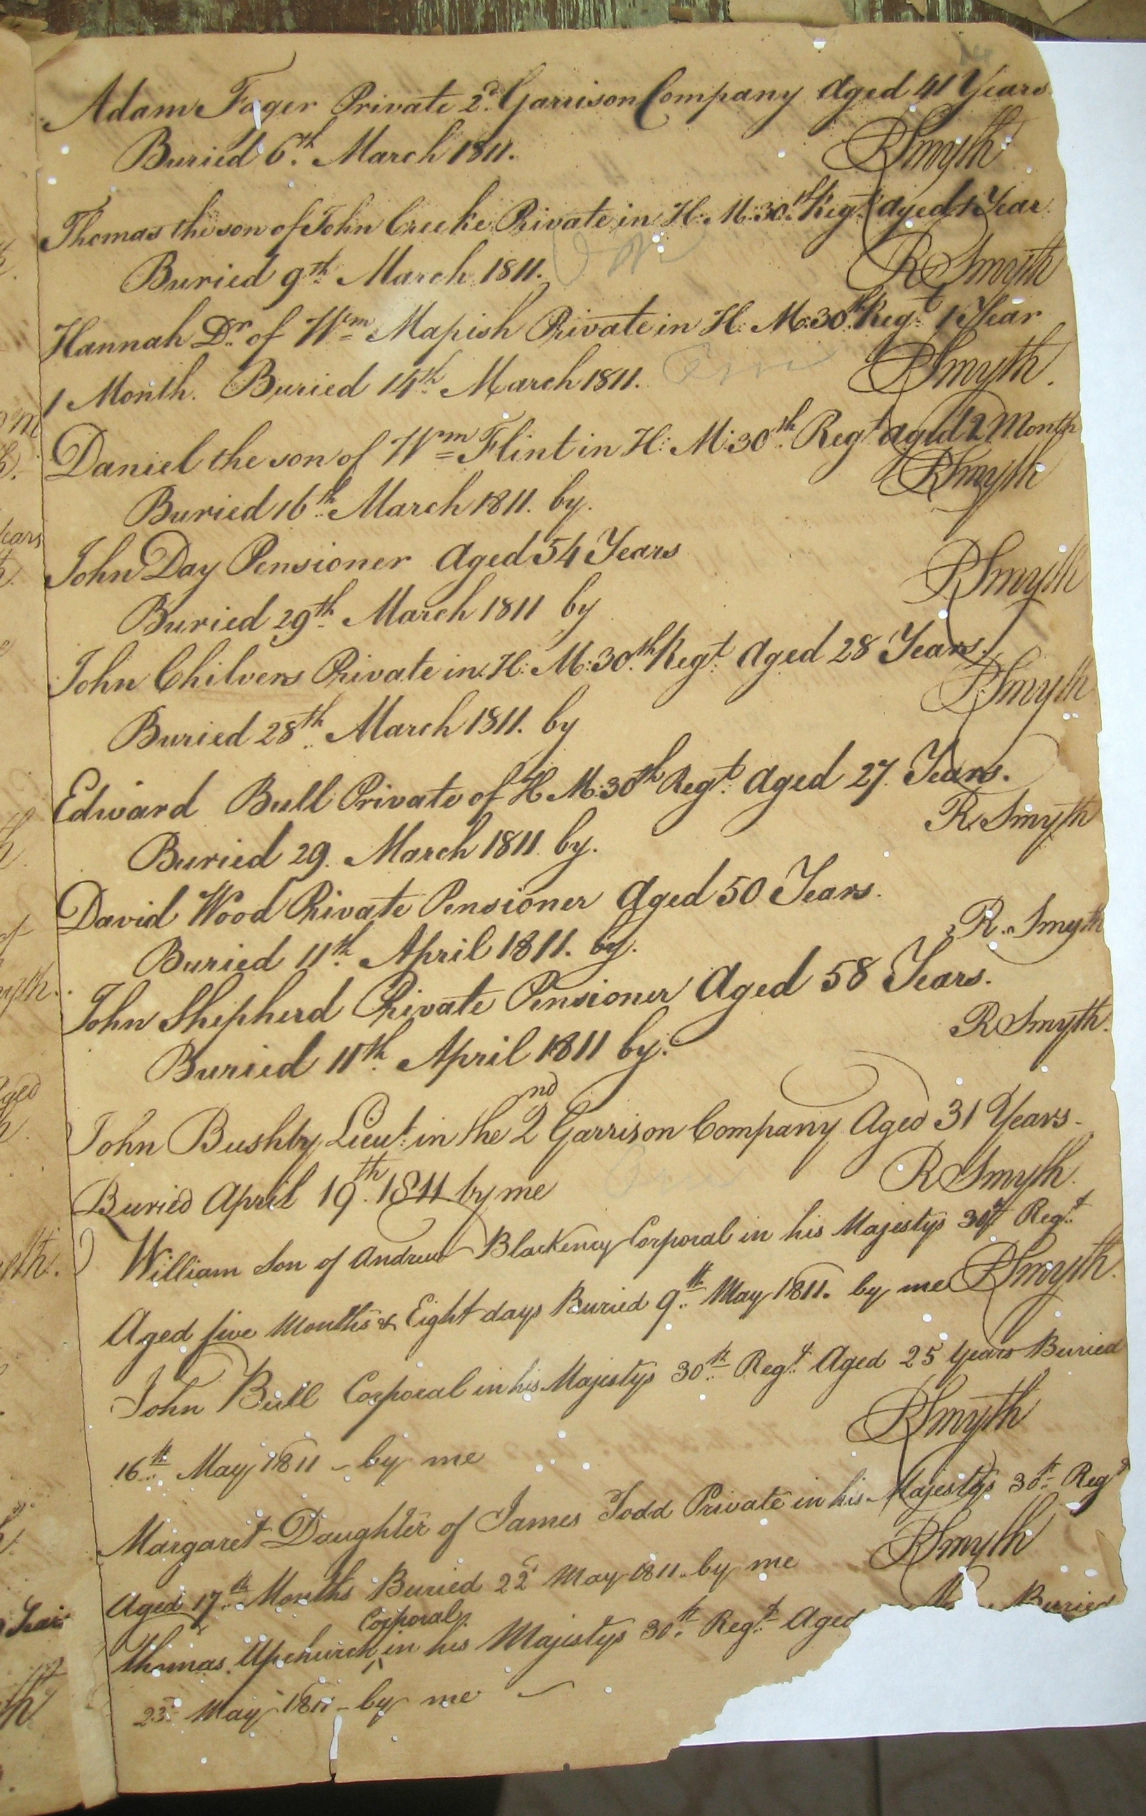 Adam Fager Private 2d. Garrison Company Aged 41 Years
Buried 6th. March 1811.
RSmyth
Thomas the son of John Creeke Private in H: M:30th. Regt. aged 1 Year.
Buried 9th. March 1811.
R Smyth
Hannah Dr. of Wm. Mapish Private in H: M:30th. Regt. 1 Year
1 Month. Buried 14th. March 1811.
RSmyth.
Daniel the son of Wm Flint in H: M:30th. Regt aged 12 Month
Buried 16th. March 1811. by.
RSmyth
John Day Pensioner Aged 54 Years
Buried 29th. March 1811 by
RSmyth
John Chilvers Private in H: M:30th. Regt. Aged 28 Years.
Buried 28th. March 1811. by
RSmyth
Edward Bull Private of H M:30th Regt. Aged 27. Years.
Buried 29. March 1811 by.
R. Smyth
David Wood Private Pensioner Aged 50 Years.
Buried 11th. April 1811. by.
R. Smyth
John Shepherd Private Pensioner Aged 58 Years.
Buried 11th. April 1811 by.
R Smyth.
John Bushby Lieut. in the 2nd Garrison Company Aged 31 Years.
Buried April 19th. 1811 by me
R Smyth.
William son of Andrew Blackeney Corporal in his Majestys 30th Regt.
Aged five Months & Eight days Buried 9th. May 1811. by me RSmyth.
John Bull Corporal in his Majestys 30th. Regt. Aged 25 years Buried
16th. May 1811 - by me
RSmyth
Margaret Daughter of James Todd Private in his Majestys 30th. Regt
Aged 17th. Months Buried 22d May 1811 by me
RSmyth
Corporal
Thomas Upchurch ^ in his Majestys 30th. Regt. Aged Buried
23d. May 1811 - by me